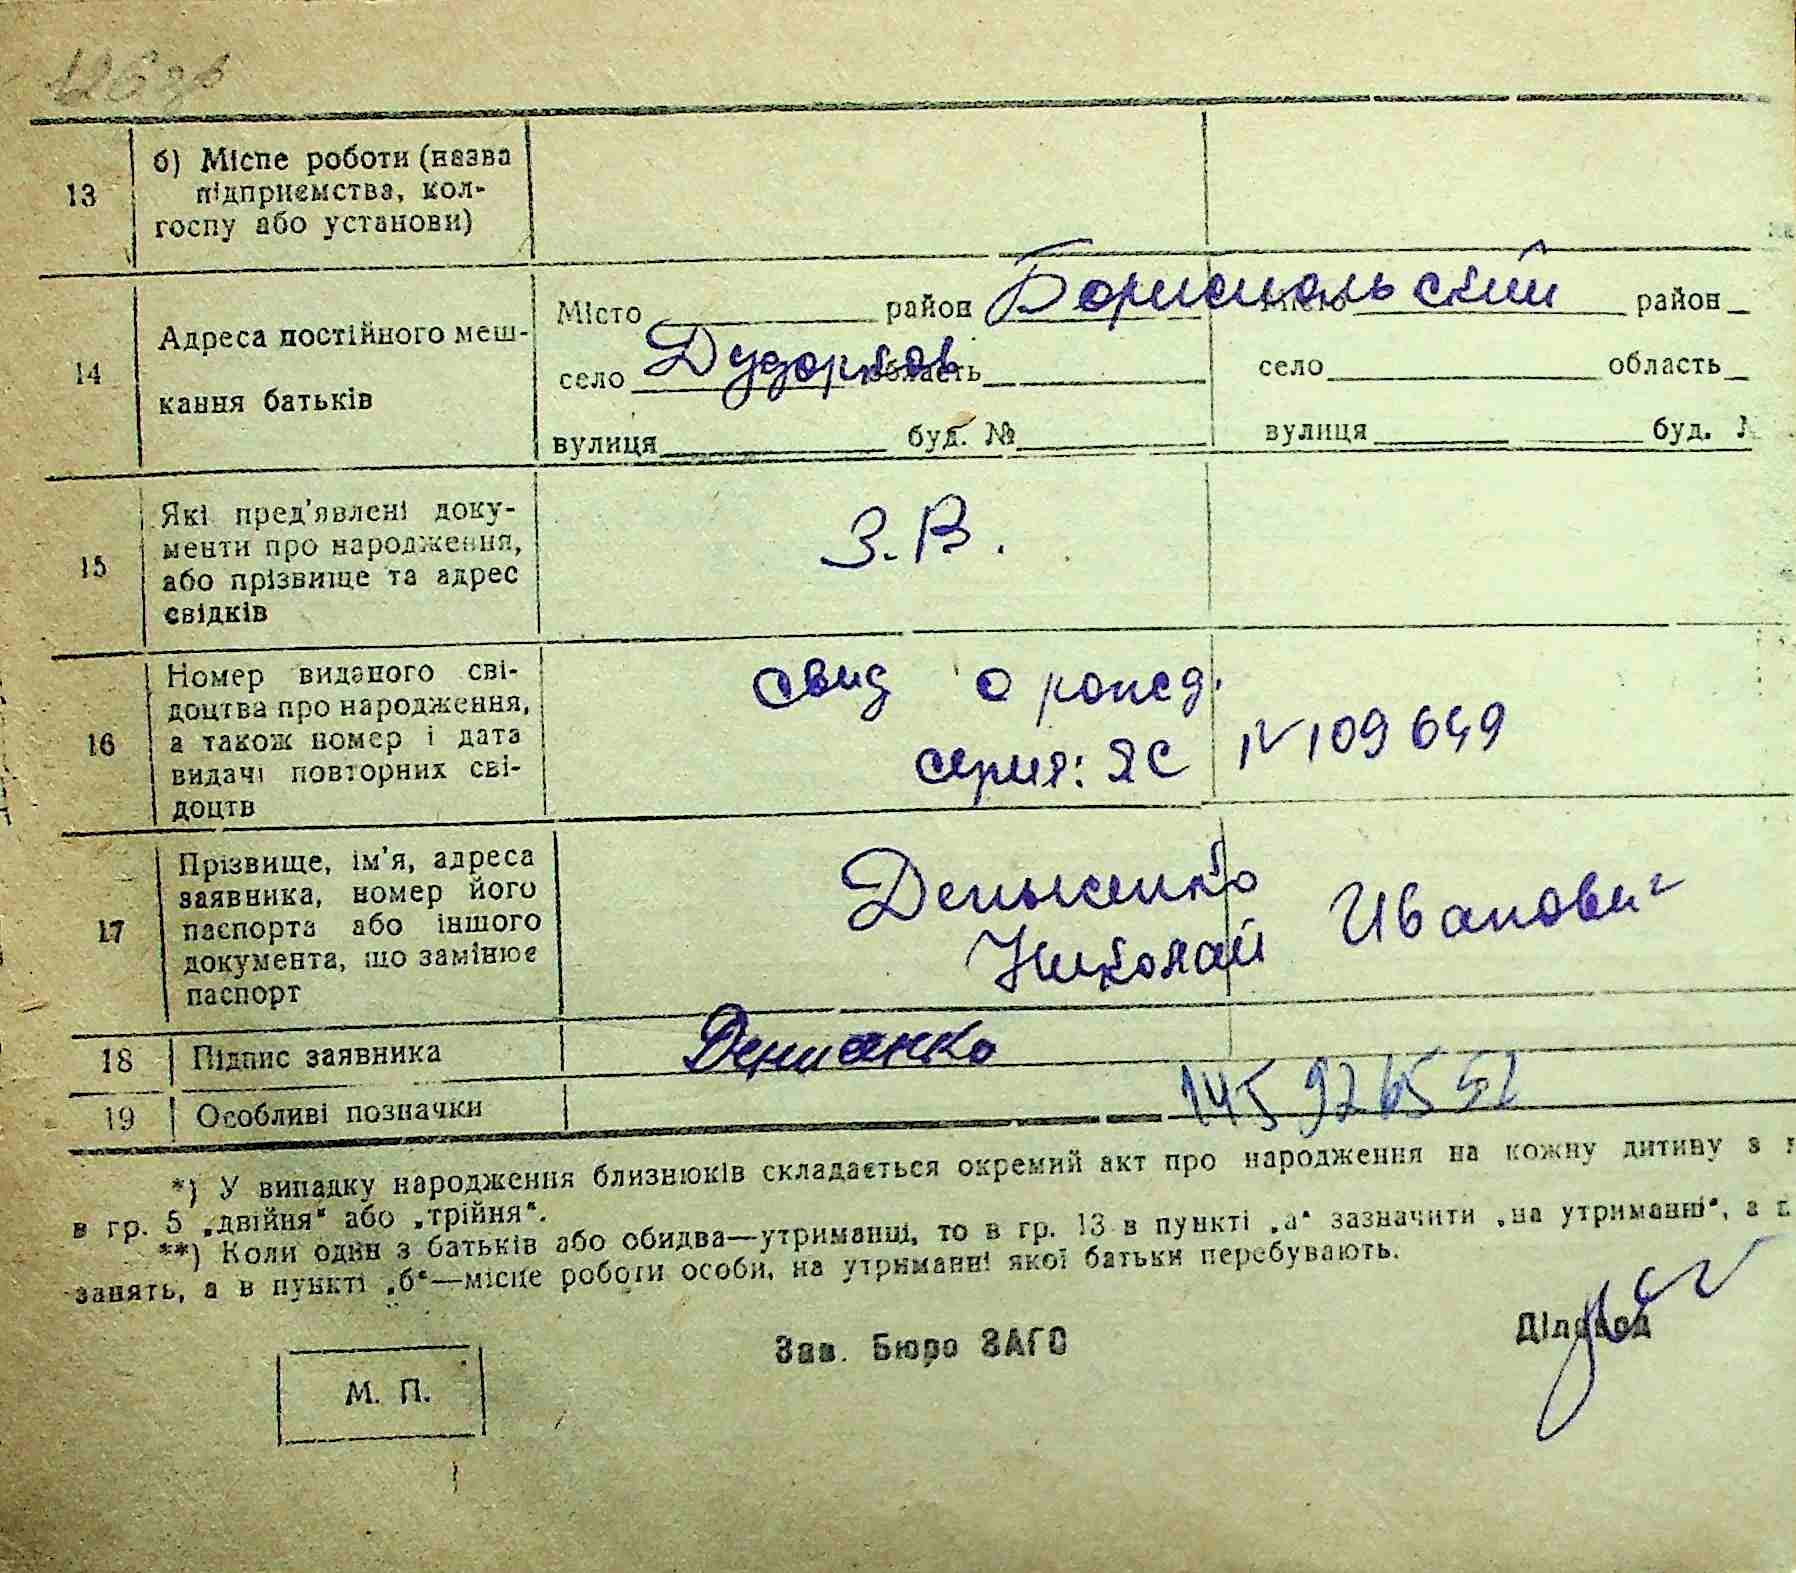 126зв
13 б) Місце роботи (назва
підприємства, кол-
госпу або установи)
14 Адреса постійного меш-
кання батьків
Місто район Бориспольский Місто район
село Дударков область село область
вулиця буд. № вулиця буд. №
15 Які пред'явлені доку-
менти про народження,
або прізвище та адрес
свідків
З.В.
16 Номер виданого сві-
доцтва про народження,
а також номер і дата
видачі повторних сві-
доцтв
свид о рожд.
серия: ЯС № 109649
17 Прізвище, ім'я, адреса
заявника, номер його
паспорта або іншого
документа, що замінює
паспорт
Николай Иванович
18 Підпис заявника
19 Особливі позначки
*) У випадку народження близнюків складається окремий акт про народження на кожну дитину з
в гр. 5 „двійня“ або „трійня“.
**) Коли один з батьків або обидва—утриманці, то в гр. 13 в пункті „а“ зазначити „на утриманні“, а
занять, а в пункті „б“—місце роботи особи, на утриманні якої батьки перебувають.
Зав. Бюро ЗАГС
Діловод
М. П.